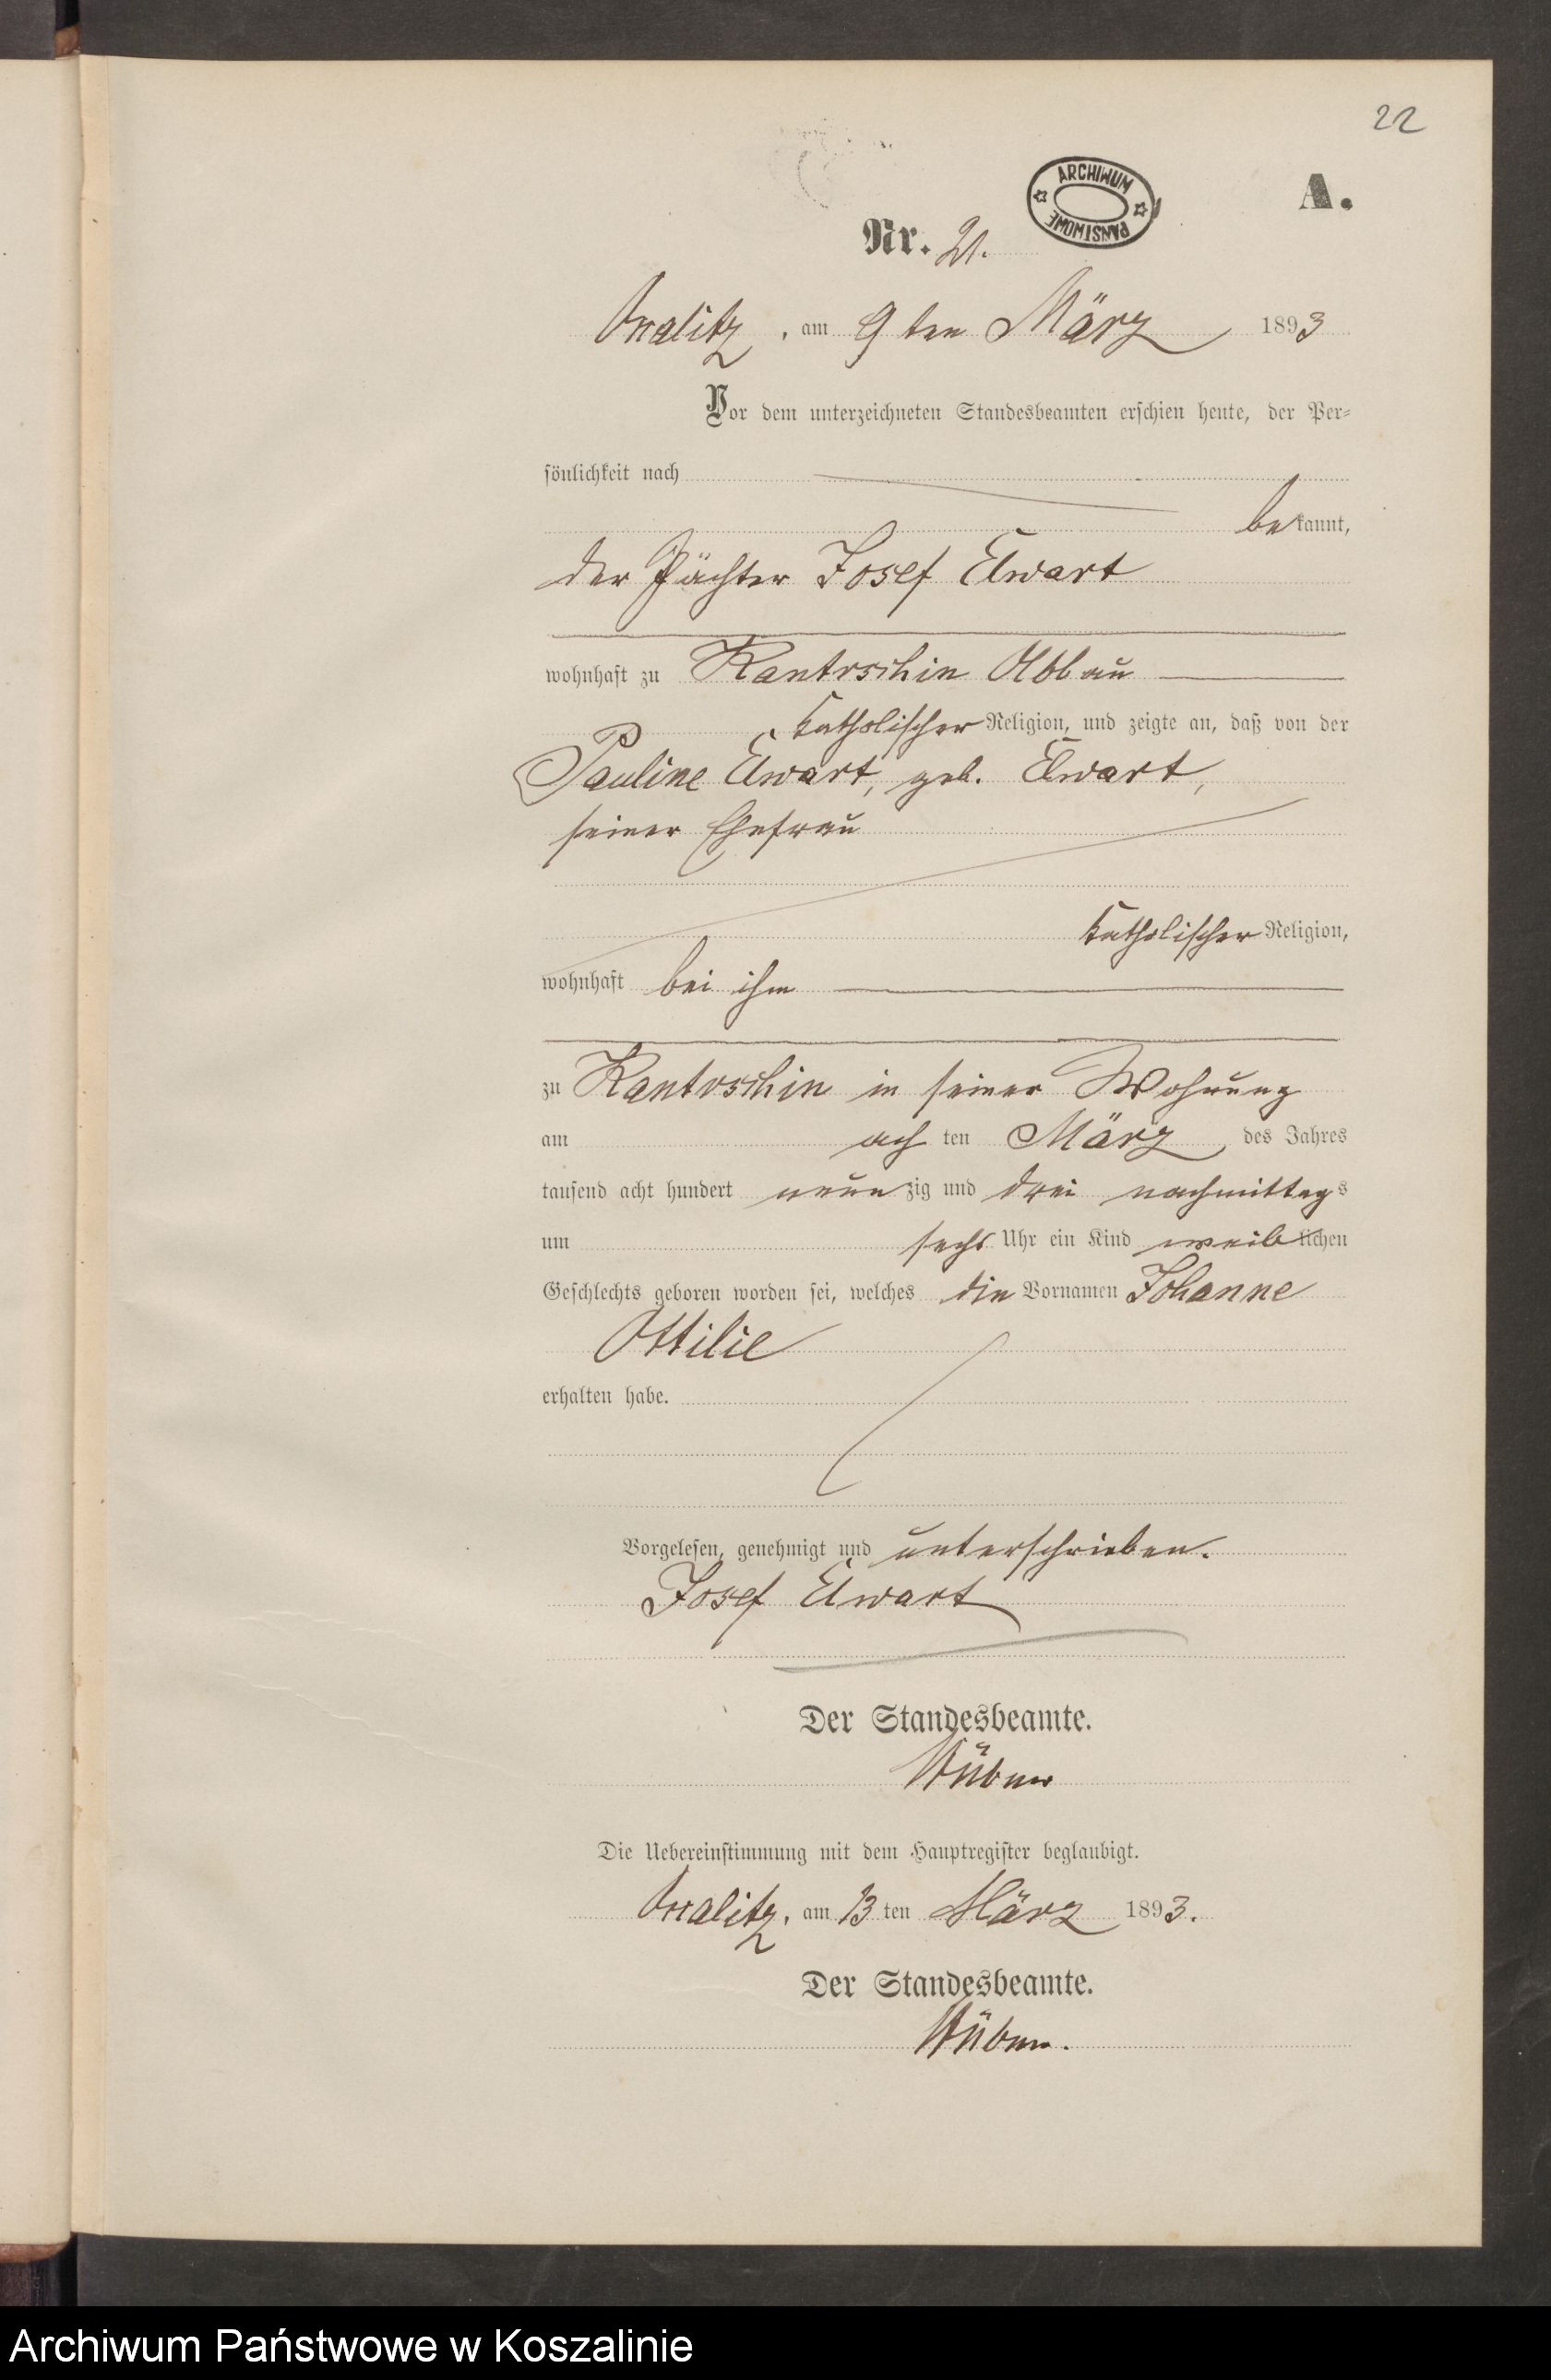 22
ARCHIWUM PAŃSTWOWE
A.
Nr. 21.
am 9 ten März 1893
Vor dem unterzeichneten Standesbeamten erschien heute, der Per-
sönlichkeit nach
bekannt,
der Pächter Josef Elwart
wohnhaft zu Kantrschin Abbau
katholischer Religion, und zeigte an, daß von der
Pauline Elwart, geb. Elwart,
seiner Ehefrau
katholischer Religion,
wohnhaft bei ihm
zu Kantrschin in seiner Wohnung
am ach ten März des Jahres
tausend acht hundert neunzig und drei nachmittags
um sechs Uhr ein Kind weiblichen
Geschlechts geboren worden sei, welches die Vornamen Johanne
Ottilie
erhalten habe.
Vorgelesen, genehmigt und unterschrieben.
Josef Elwart
Der Standesbeamte.
Die Uebereinstimmung mit dem Hauptregister beglaubigt.
am 13 ten März 1893.
Der Standesbeamte.
Archiwum Państwowe w Koszalinie